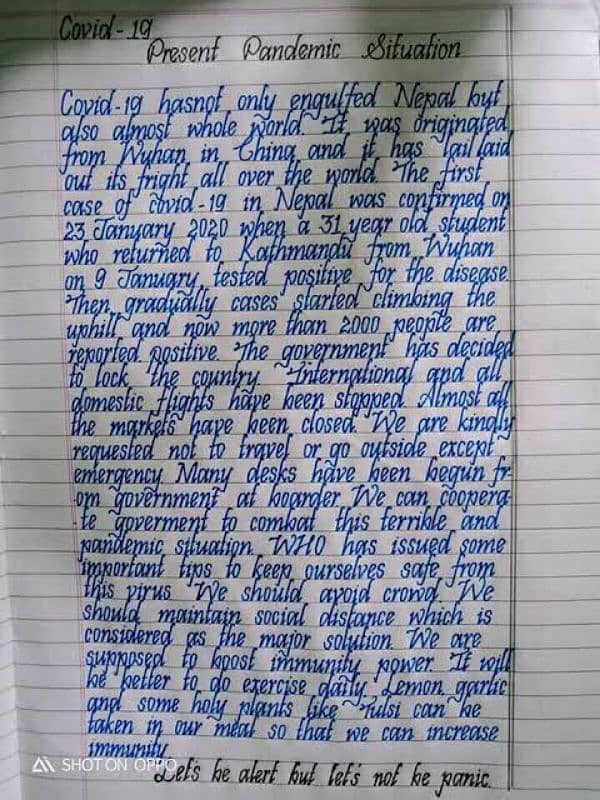 Covid-19
Present Pandemic Situation
Covid-19 hasnot only engulfed Nepal but
also almost whole world. It was originated
from Wuhan in China and it has laid
out its fright all over the world. The first
case of covid-19 in Nepal was confirmed on
23 January 2020 when a 31 year old student
who returned to Kathmandu from Wuhan
on 9 January, tested positive for the disease.
Then gradually cases started climbing the
uphill and now more than 2000 people are
reported positive. The government has decided
to lock the country. International and all
domestic flights have been stopped. Almost all
the markets have been closed. We are kingly
requested not to travel or go outside except
emergency. Many desks have been begun fr-
om government at boarder. We can coopera-
te goverment to combat this terrible and
pandemic situation. WHO has issued some
important tips to keep ourselves safe from
this virus. We should avoid crowd. We
should maintain social distance which is
considered as the major solution. We are
supposed to boost immunity power. It will
be better to do exercise daily. Lemon, garlic
and some holy plants like Tulsi can be
taken in our meal so that we can increase
immunity.
Let's be alert but let's not be panic.
SHOT ON OPPO